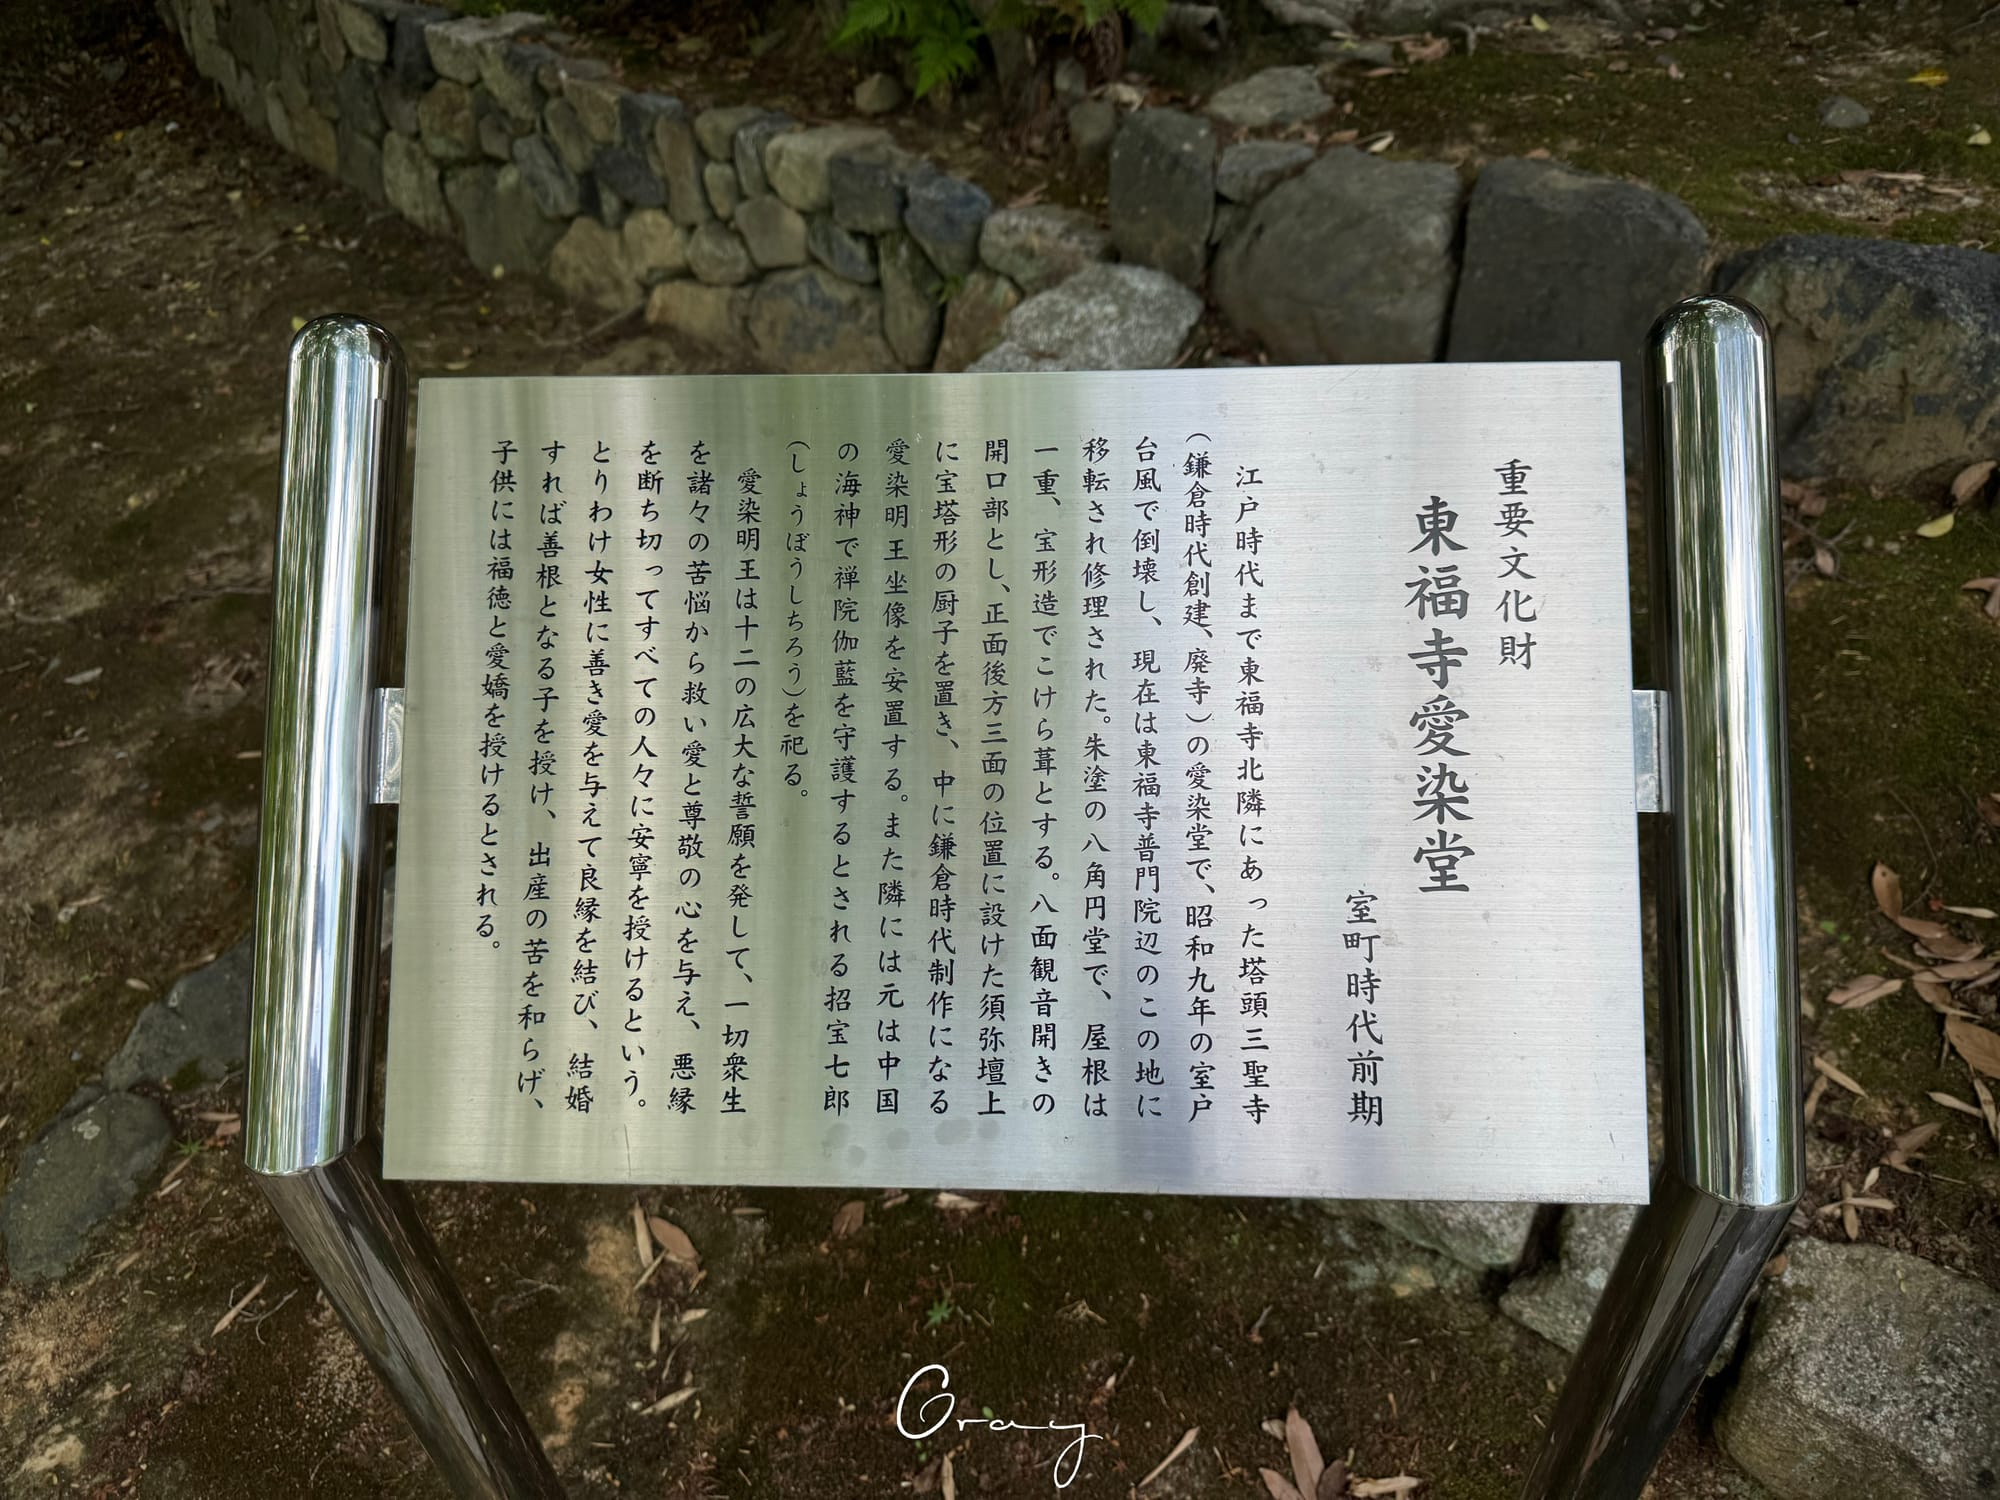 重要文化財
東福寺愛染堂
室町時代前期
江戸時代まで東福寺北隣にあった塔頭三聖寺
(鎌倉時代創建、廃寺)の愛染堂で、昭和九年の室戸
台風で倒壊し、現在は東福寺普門院辺のこの地に
移転され修理された。朱塗の八角円堂で、屋根は
一重、宝形造でこけら葺とする。八面観音開きの
開口部とし、正面後方三面の位置に設けた須弥壇上
に宝塔形の厨子を置き、中に鎌倉時代制作になる
愛染明王坐像を安置する。また隣には元は中国
の海神で禅院伽藍を守護するとされる招宝七郎
(しょうぼうしちろう)を祀る。
愛染明王は十二の広大な誓願を発して、一切衆生
を諸々の苦悩から救い愛と尊敬の心を与え、悪縁
を断ち切ってすべての人々に安寧を授けるという。
とりわけ女性に善き愛を与えて良縁を結び、結婚
すれば善根となる子を授け、出産の苦を和らげ、
子供には福徳と愛嬌を授けるとされる。
Gray